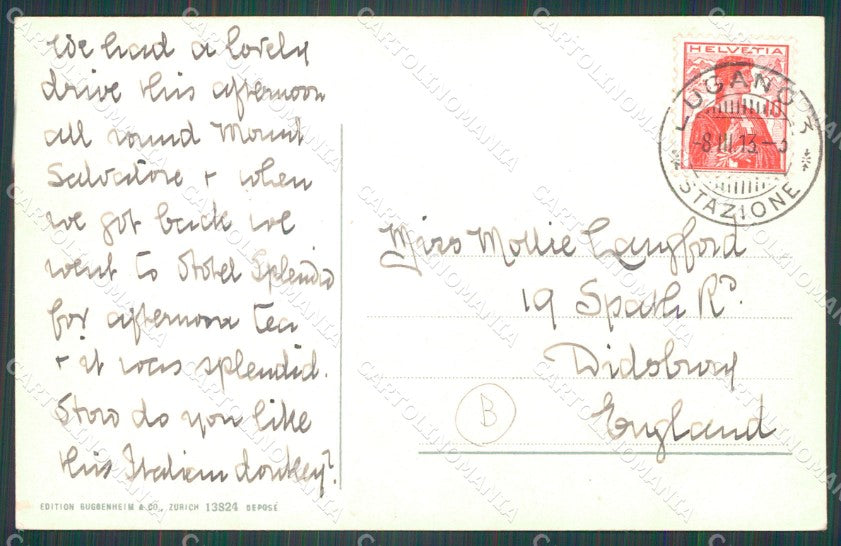 We had a lovely
drive this afternoon
all round Mount
Salvatore + when
we got back we
went to Hotel Splendid
for afternoon tea
+ it was splendid.
How do you like
this Italian donkey?
EDITION GUGGENHEIM & CO., ZÜRICH 13824 DEPOSÉ
HELVETIA
10
LUGANO 3
-8 III 13.-3
STAZIONE
Miss Mollie Langford
19 Spath Rd.
Didsbury
England
B
CARTOLINOMANIA